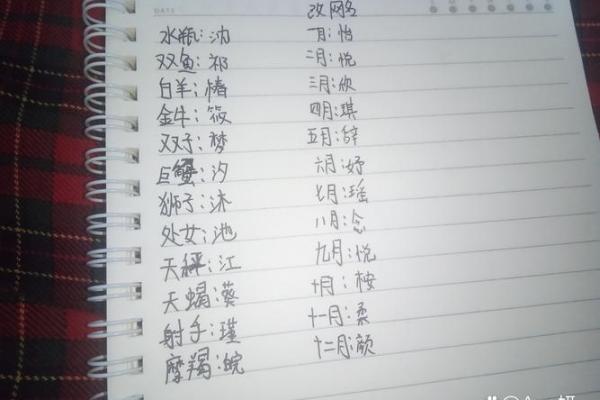 DATE
改网名
水瓶:沏 一月:怡
双鱼:祁 二月:悦
白羊;椿 三月:欣
金牛;筱 四月:琪
双子;梦 五月:辞
巨蟹:汐 六月:妤
狮子:沐 七月:瑶
处女;池 八月:念
天秤:江 九月:悦
天蝎:葵 十月;桉
射手:瑾 十一月:柔
摩羯:皖 十二月:颜